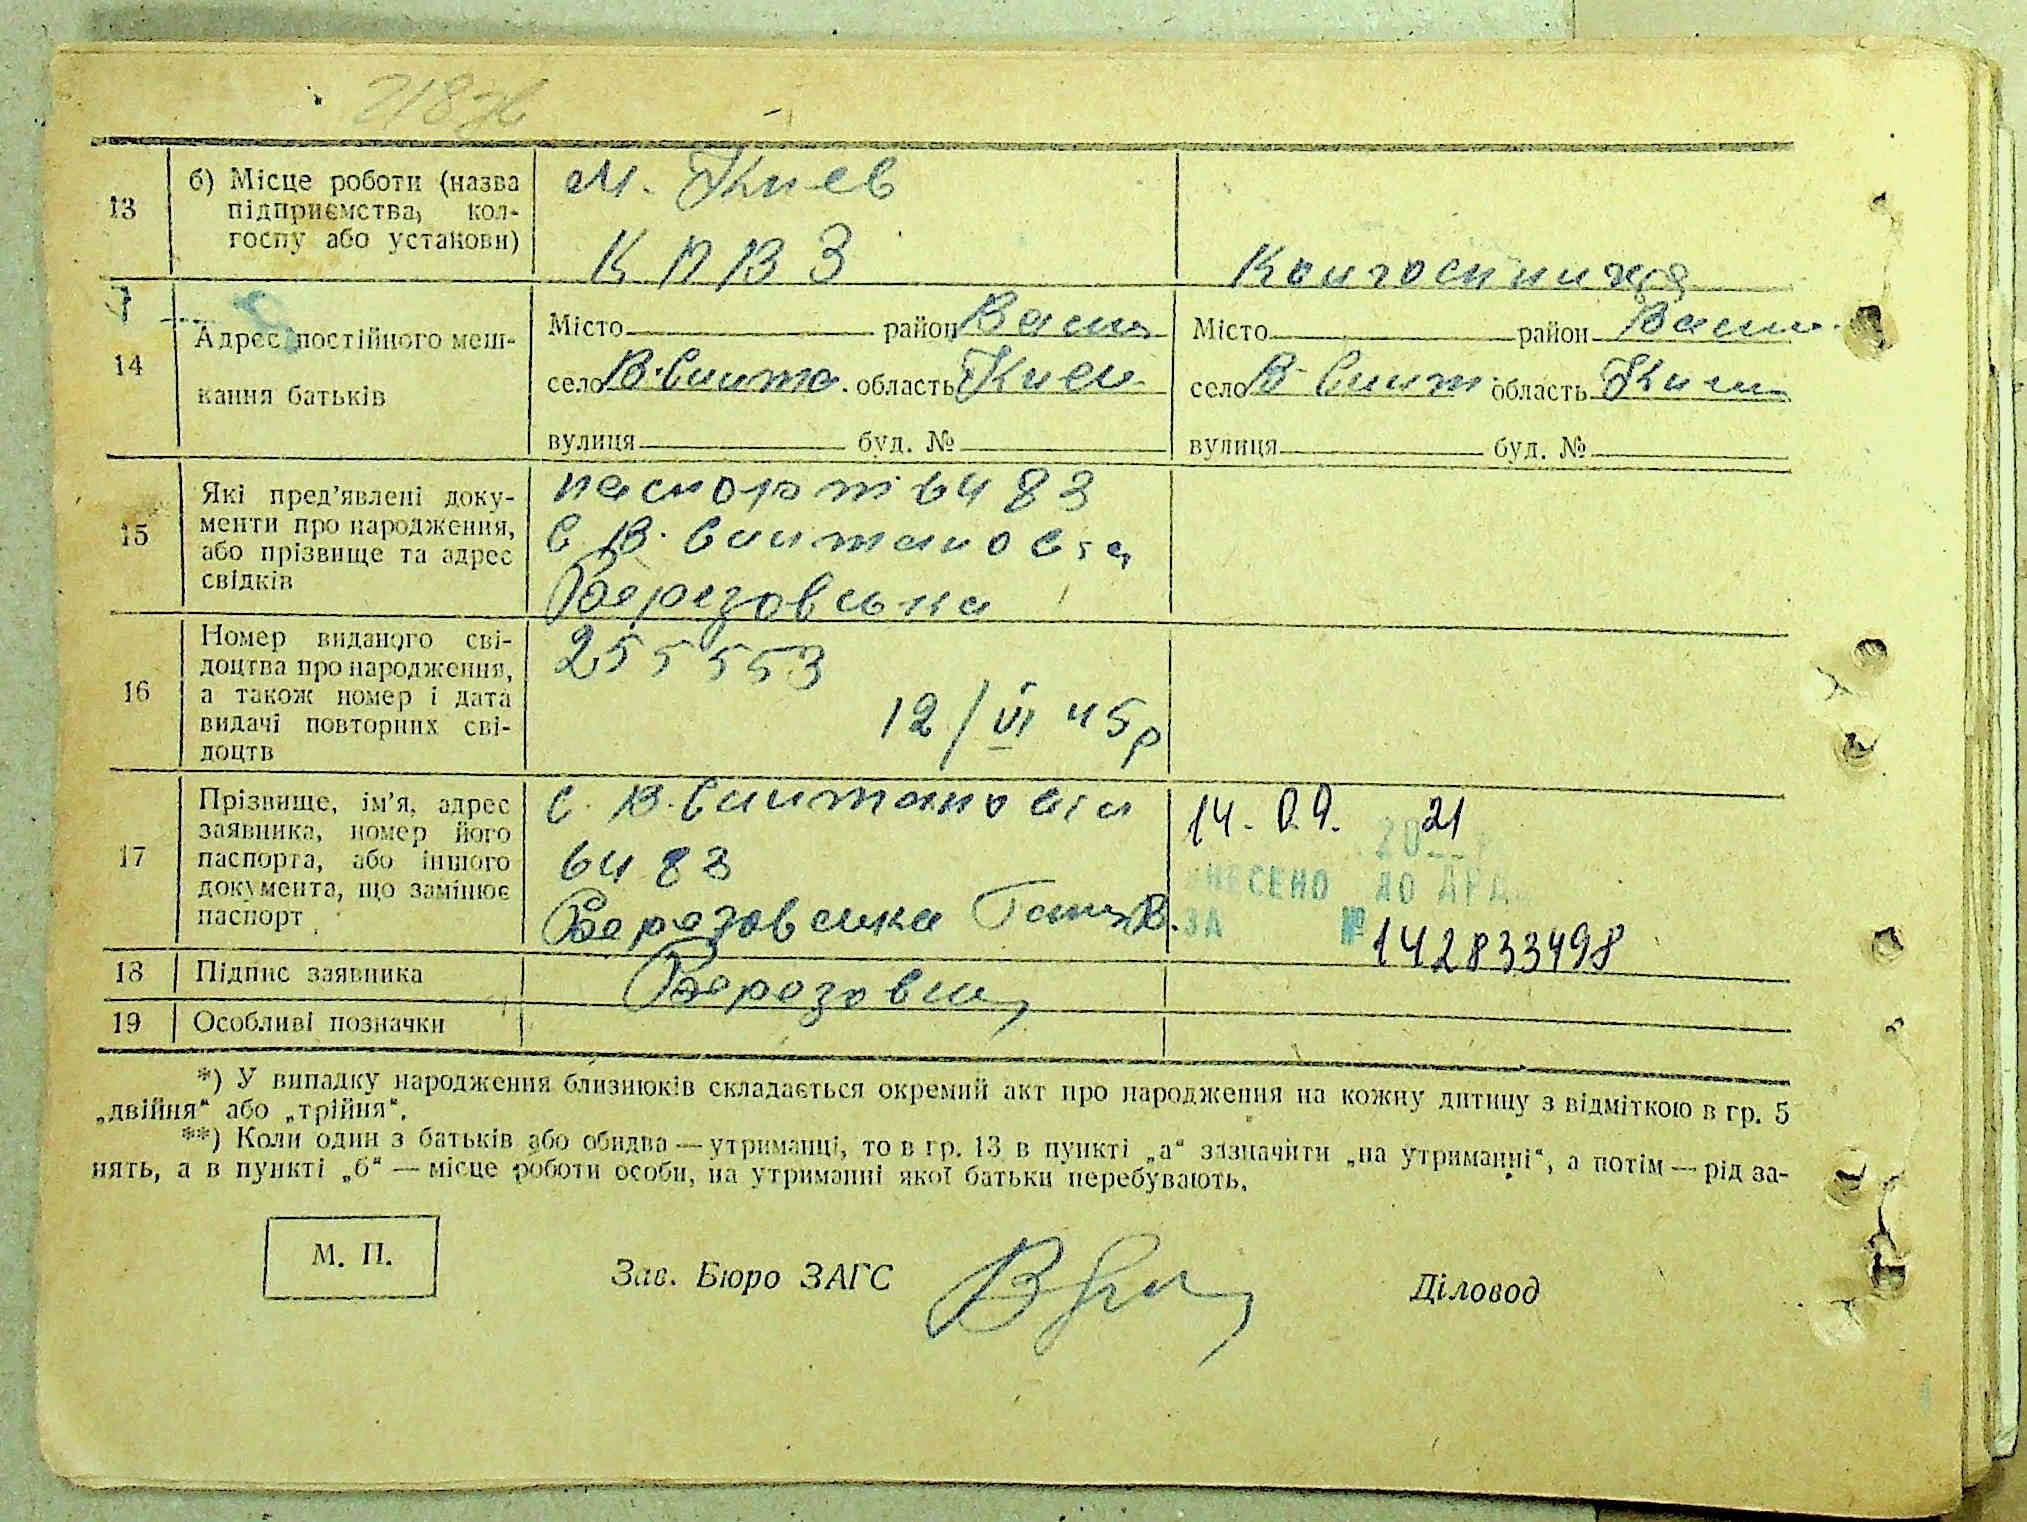 13
б) Місце роботи (назва
підприємства, кол-
госпу або установи)
м. Киев
К П В З
Колгоспниця
14
Адрес постійного меш-
кання батьків
Місто район Васи
село В. Снита. область Киев.
вулиця буд. №
Місто район Васи.
село В. Снит область Киев
вулиця буд. №
15
Які пред'явлені доку-
менти про народження,
або прізвище та адрес
свідків
паспорт 6483
с. В. Снитановса
Березовська
16
Номер виданого сві-
доцтва про народження,
а також номер і дата
видачі повторних сві-
доцтв
255553
12/VI 45р
17
Прізвище, ім'я, адрес
заявника, номер його
паспорта, або іншого
документа, що замінює
паспорт
с. В.
6483
Березовська Ганна В.
14. 09. 2021
ВНЕСЕНО ДО ДРА
ЗА № 142833498
18
Підпис заявника
Березовсь
19
Особливі позначки
*) У випадку народження близнюків складається окремий акт про народження на кожну дитину з відміткою в гр. 5
„двійня“ або „трійня“.
**) Коли один з батьків або обидва — утриманці, то в гр. 13 в пункті „а“ зазначити „на утриманні“, а потім — рід за-
нять, а в пункті „б“ — місце роботи особи, на утриманні якої батьки перебувають.
М. П.
Зав. Бюро ЗАГС
Діловод